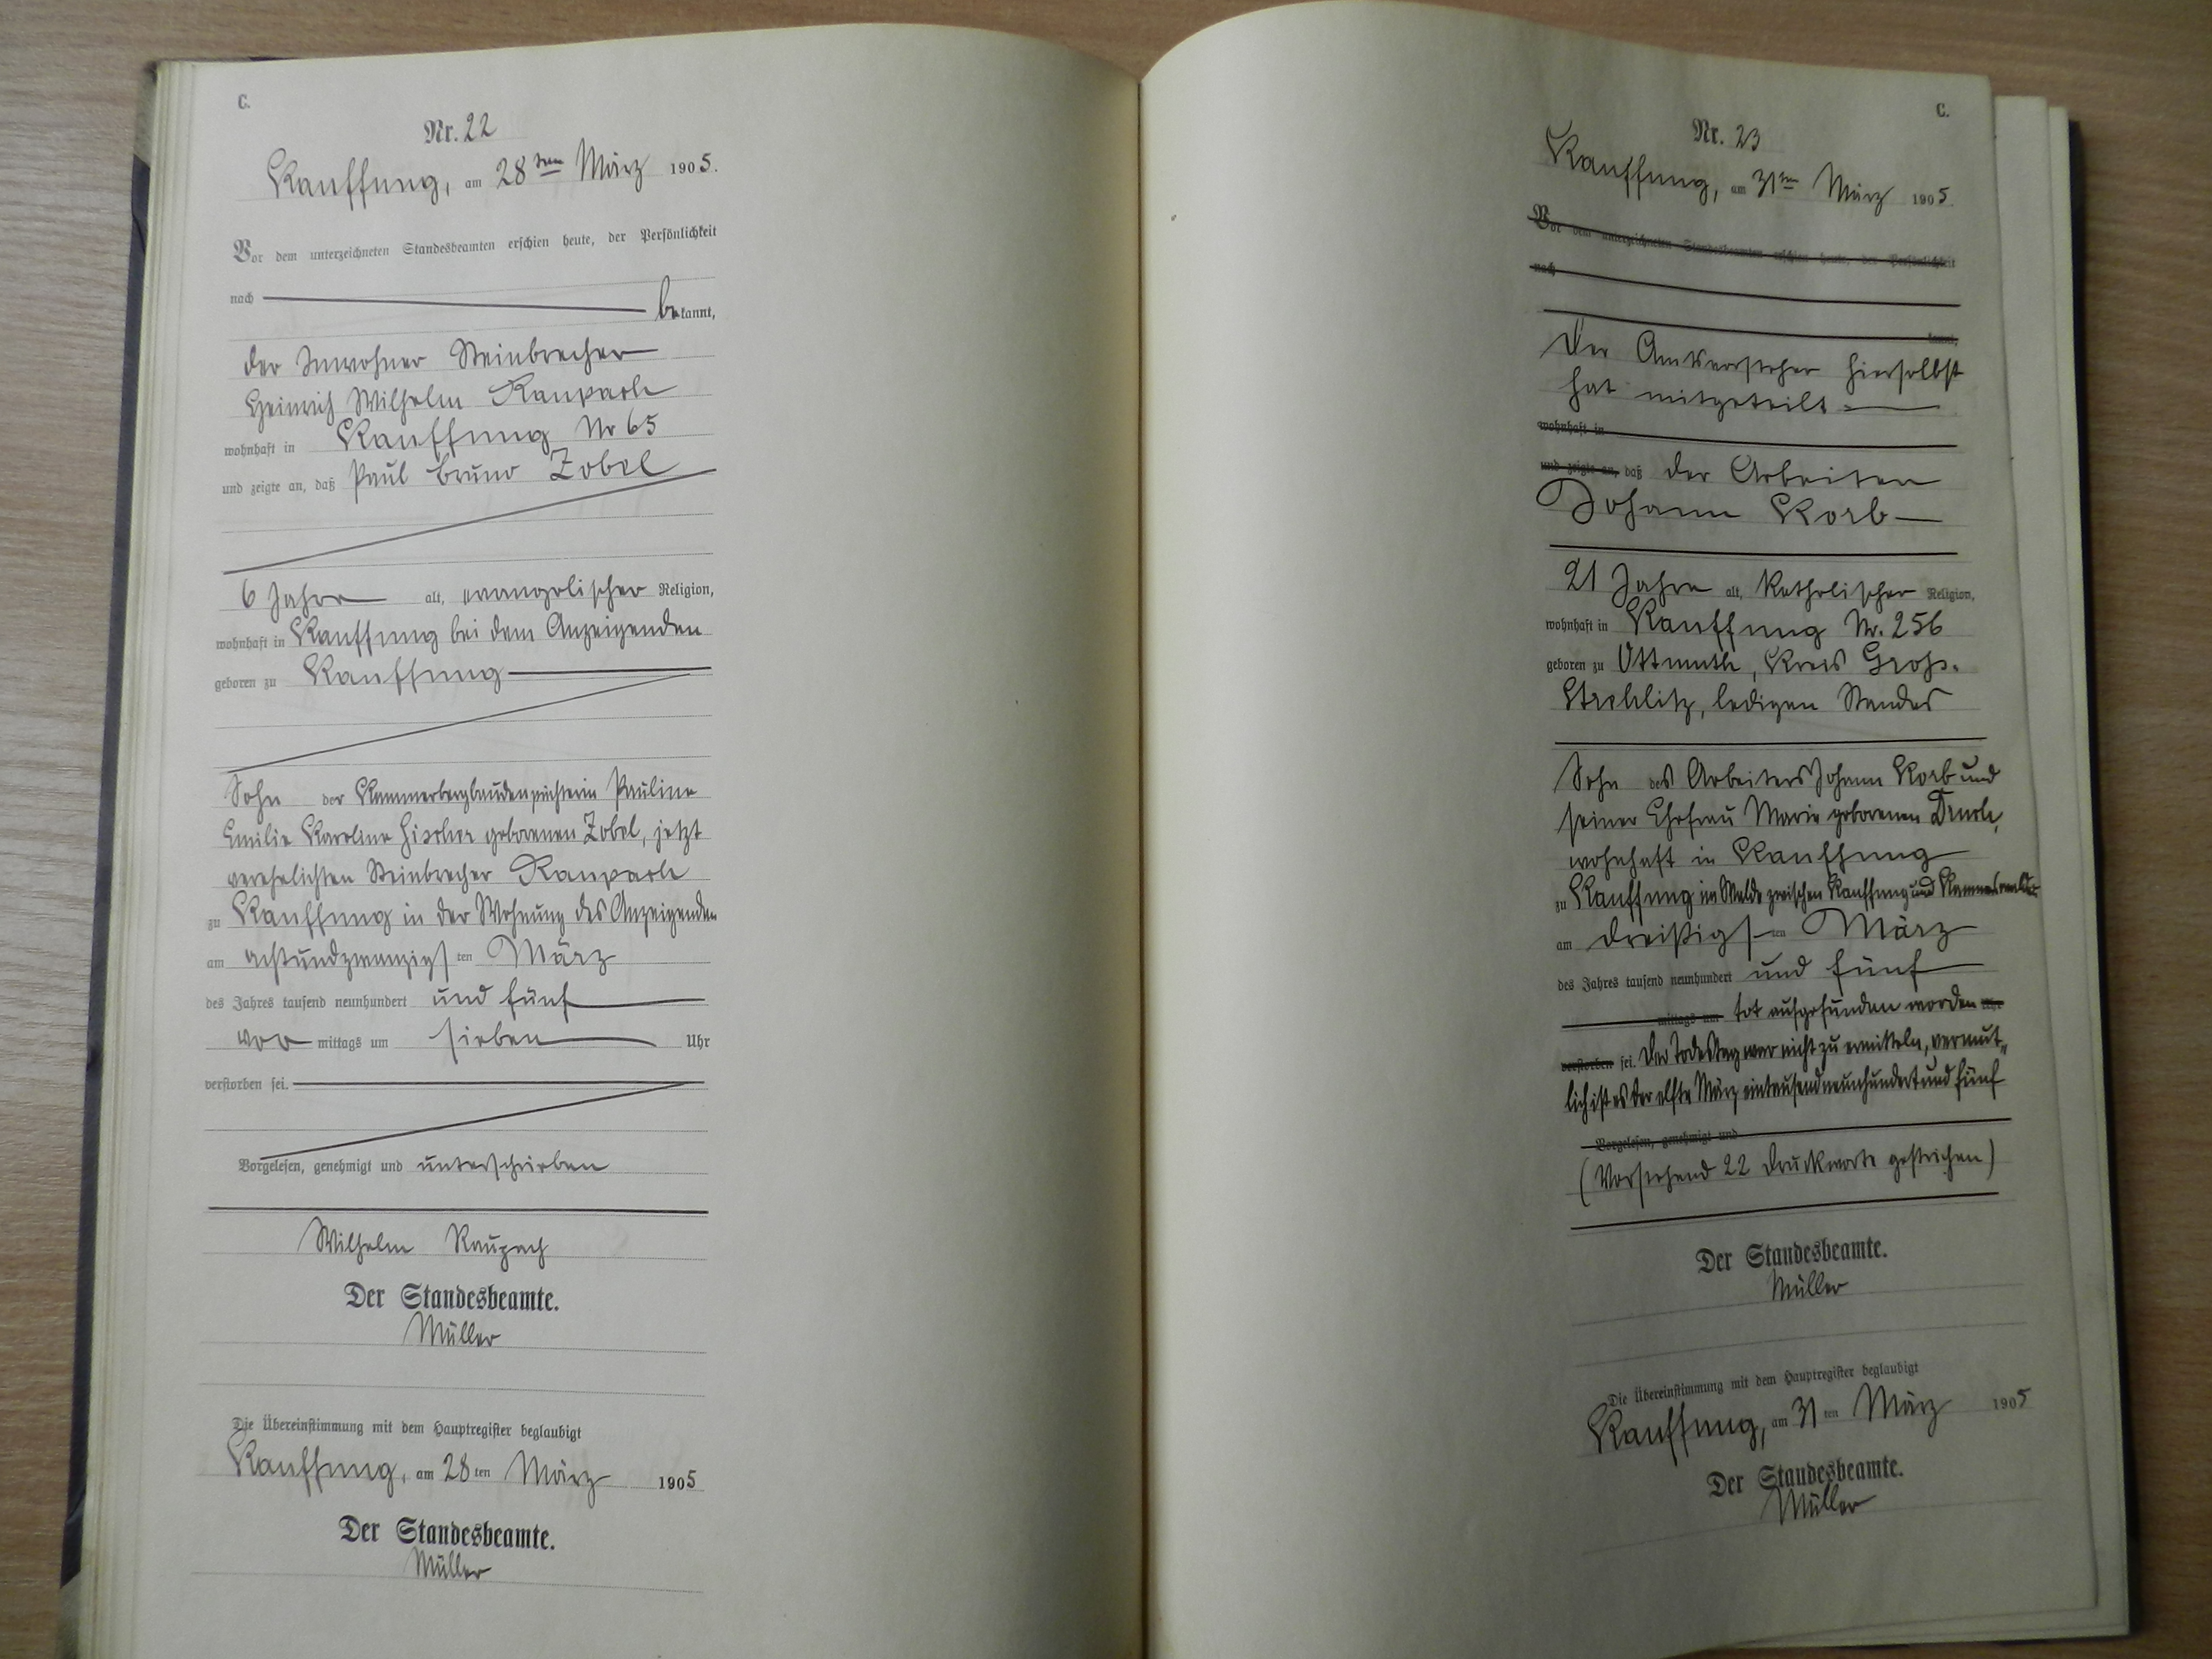 C.
Nr. 22
Kauffung, am 28ten März 1905.
Vor dem unterzeichneten Standesbeamten erschien heute, der Persönlichkeit
nach bekannt,
der Inwohner Steinbrecher
Heinrich Wilhelm Raupach
wohnhaft in Kauffung Nr 65
und zeigte an, daß Paul Bruno Zobel
6 Jahre alt, evangelischer Religion,
wohnhaft in Kauffung bei dem Anzeigenden
geboren zu Kauffung
Sohn der Pauline
Emilie Karoline geborenen Zobel, jetzt
verehelichten Steinbrecher Raupach
zu Kauffung in der Wohnung des Anzeigenden
am achtundzwanzigsten März
des Jahres tausend neunhundert und fünf
vor mittags um sieben Uhr
verstorben sei.
Vorgelesen, genehmigt und unterschrieben
Wilhelm Raupach
Der Standesbeamte.
Müller
Die Übereinstimmung mit dem Hauptregister beglaubigt
Kauffung, am 28ten März 1905
Der Standesbeamte.
Müller
C.
Nr. 23
Kauffung, am 31ten März 1905
Vor dem unterzeichneten Standesbeamten erschien heute, der Persönlichkeit
nach
kannt,
Der Amtsvorsteher hierselbst
hat mitgeteilt
wohnhaft in
und zeigte an, daß der Arbeiter
Johann Korb
21 Jahre alt, katholischer Religion,
wohnhaft in Kauffung Nr. 256
geboren zu Ottmuth, Kreis Groß-
Strehlitz, ledigen Standes
Sohn des Arbeiters Johann Korb und
seiner Ehefrau Marie geborenen
wohnhaft in Kauffung
zu Kauffung im Walde zwischen Kauffung und
am dreißigsten März
des Jahres tausend neunhundert und fünf
mittags um tot aufgefunden worden Uhr
verstorben sei. Der Todestag war nicht zu ermitteln, vermut-
lich ist es der elfte März eintausendneunhundert und fünf
Vorgelesen, genehmigt und
(Vorstehend 22 Druckworte gestrichen)
Der Standesbeamte.
Müller
Die Übereinstimmung mit dem Hauptregister beglaubigt
Kauffung, am 31ten März 1905
Der Standesbeamte.
Müller